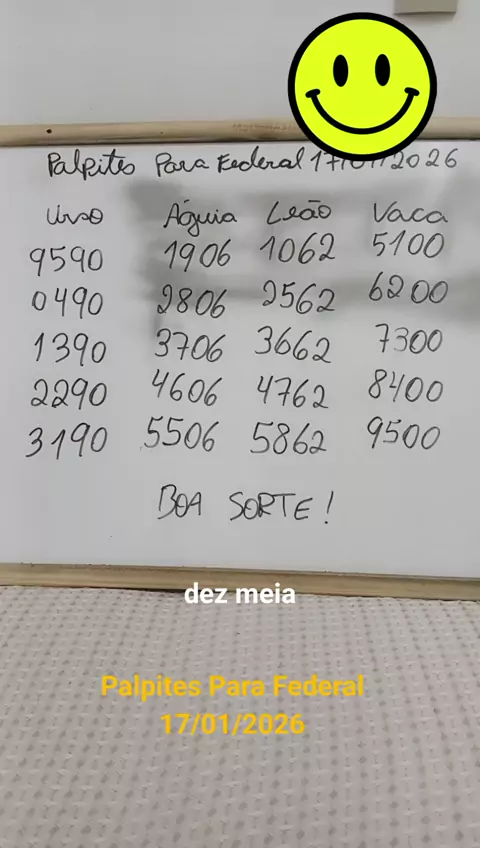 Palpites Para Federal 17/01/2026
Urso Águia Leão Vaca
9590 1906 1062 5100
0490 2806 2562 6200
1390 3706 3662 7300
2290 4606 4762 8400
3190 5506 5862 9500
BOA SORTE!
dez meia
Palpites Para Federal
17/01/2026